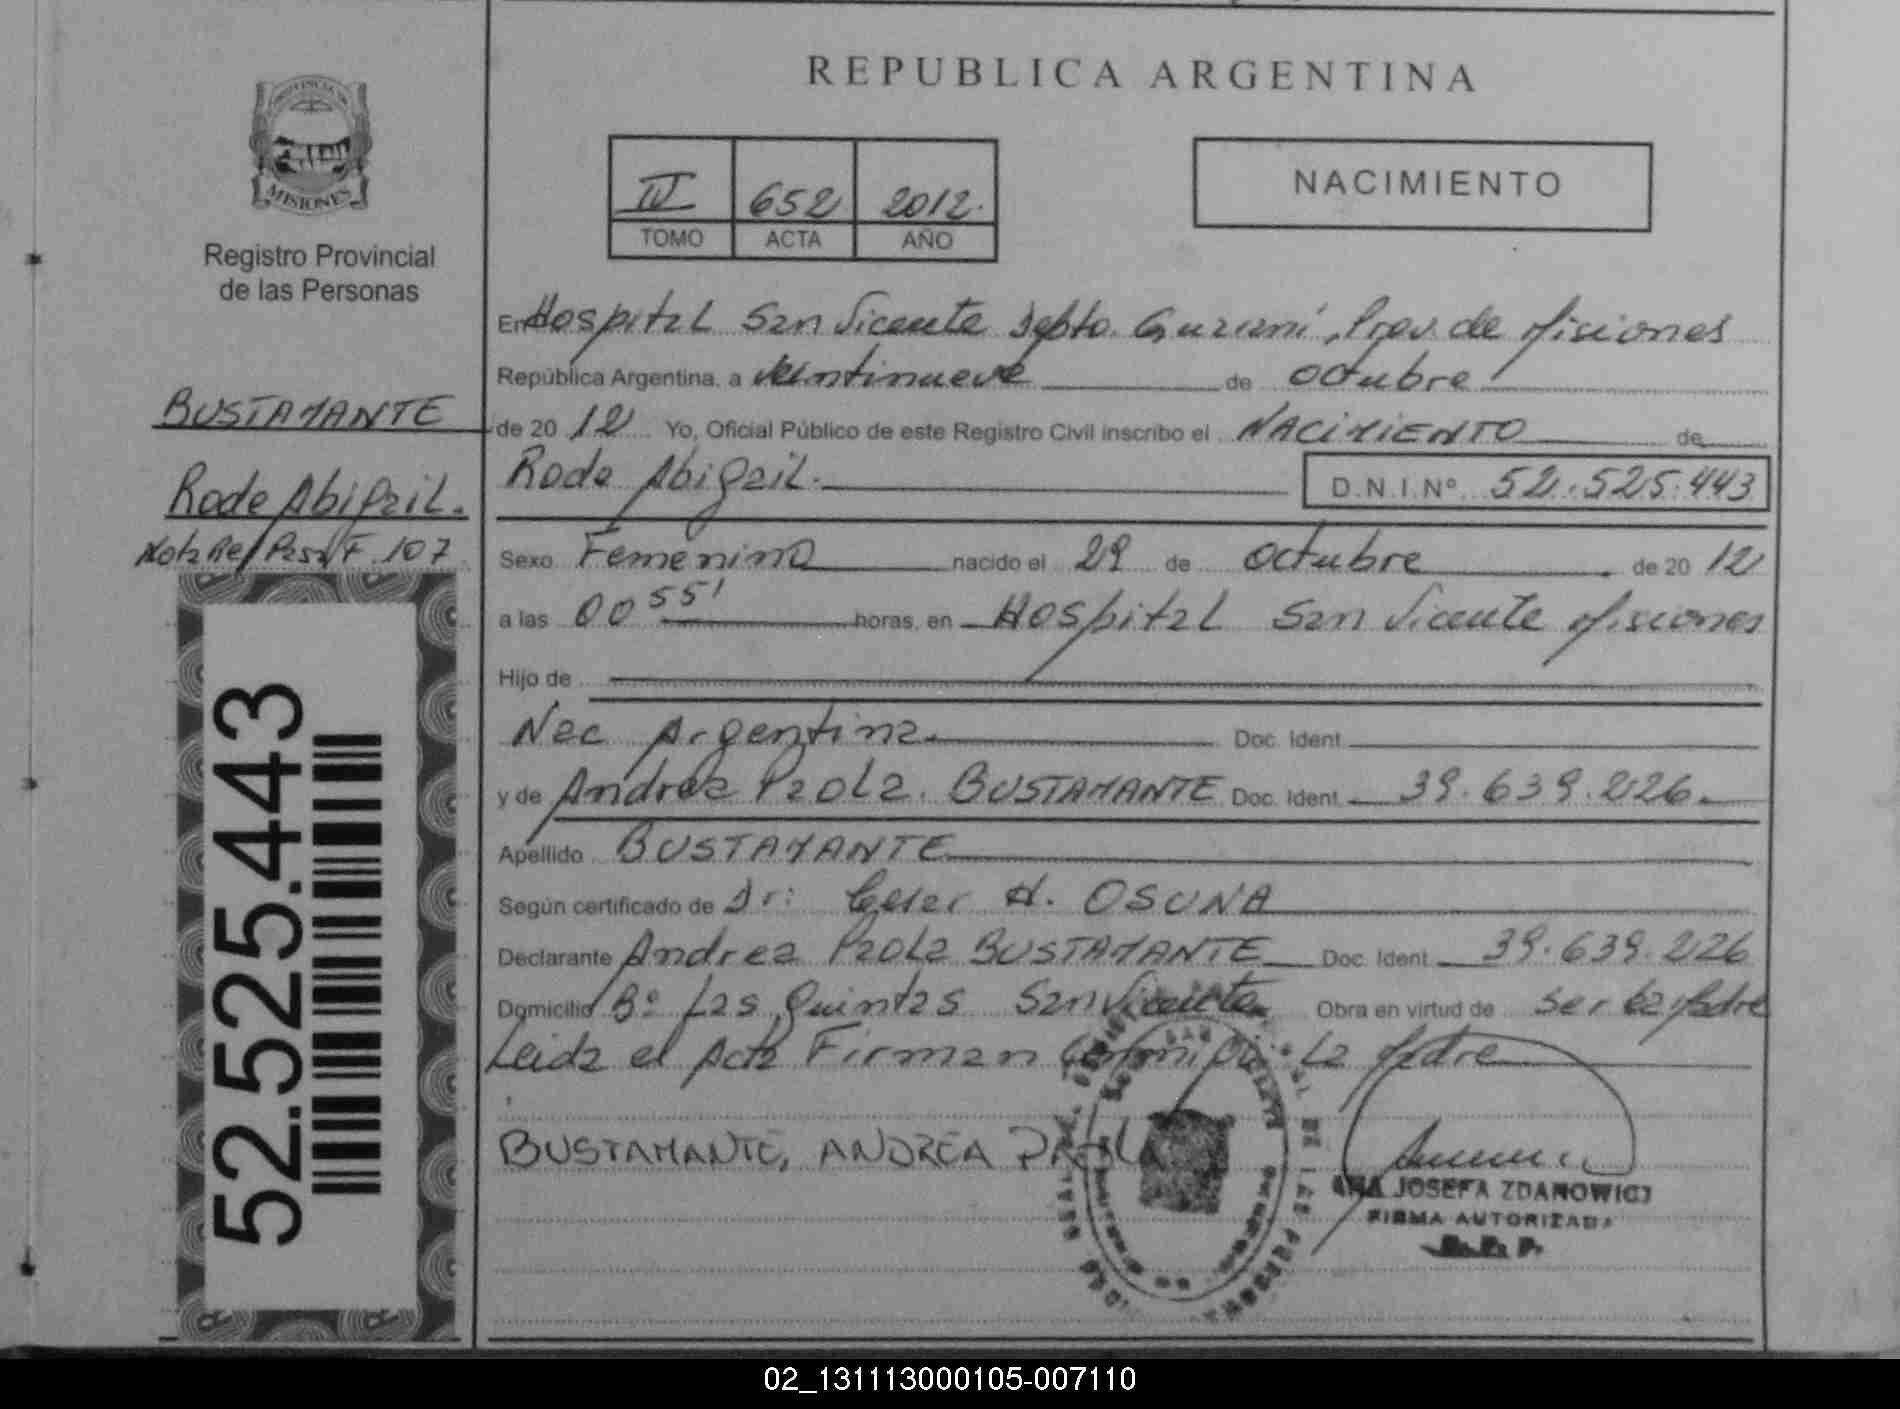 REPUBLICA ARGENTINA
MISIONES
Registro Provincial
de las Personas
IV 652 2012.
TOMO ACTA AÑO
NACIMIENTO
BUSTAMANTE
Rode Abigail.
Nota Ref Pasa F. 107
52.525.443
En Hospital San Vicente Depto. Guaraní, Prov. de Misiones
República Argentina, a veintinueve de octubre
de 20 12 Yo, Oficial Público de este Registro Civil inscribo el NACIMIENTO de
Rode Abigail. D.N.I.Nº 52.525.443
Sexo Femenino nacido el 29 de octubre de 20 12
a las 00 55' horas, en Hospital San Vicente Misiones
Hijo de
Nac Argentina. Doc. Ident.
y de Andrea Paola BUSTAMANTE Doc. Ident. 39.639.226.
Apellido BUSTAMANTE
Según certificado de Dr: Cesar H. OSUNA
Declarante Andrea Paola BUSTAMANTE Doc. Ident. 39.639.226
Domicilio Bº Las Quintas San Vicente Obra en virtud de ser la Madre
Leida el Acta Firman Conmigo La Madre
BUSTAMANTE, ANDREA PAOLA
ANA JOSEFA ZDANOWICZ
FIRMA AUTORIZADA
R. P. P.
02_131113000105-007110